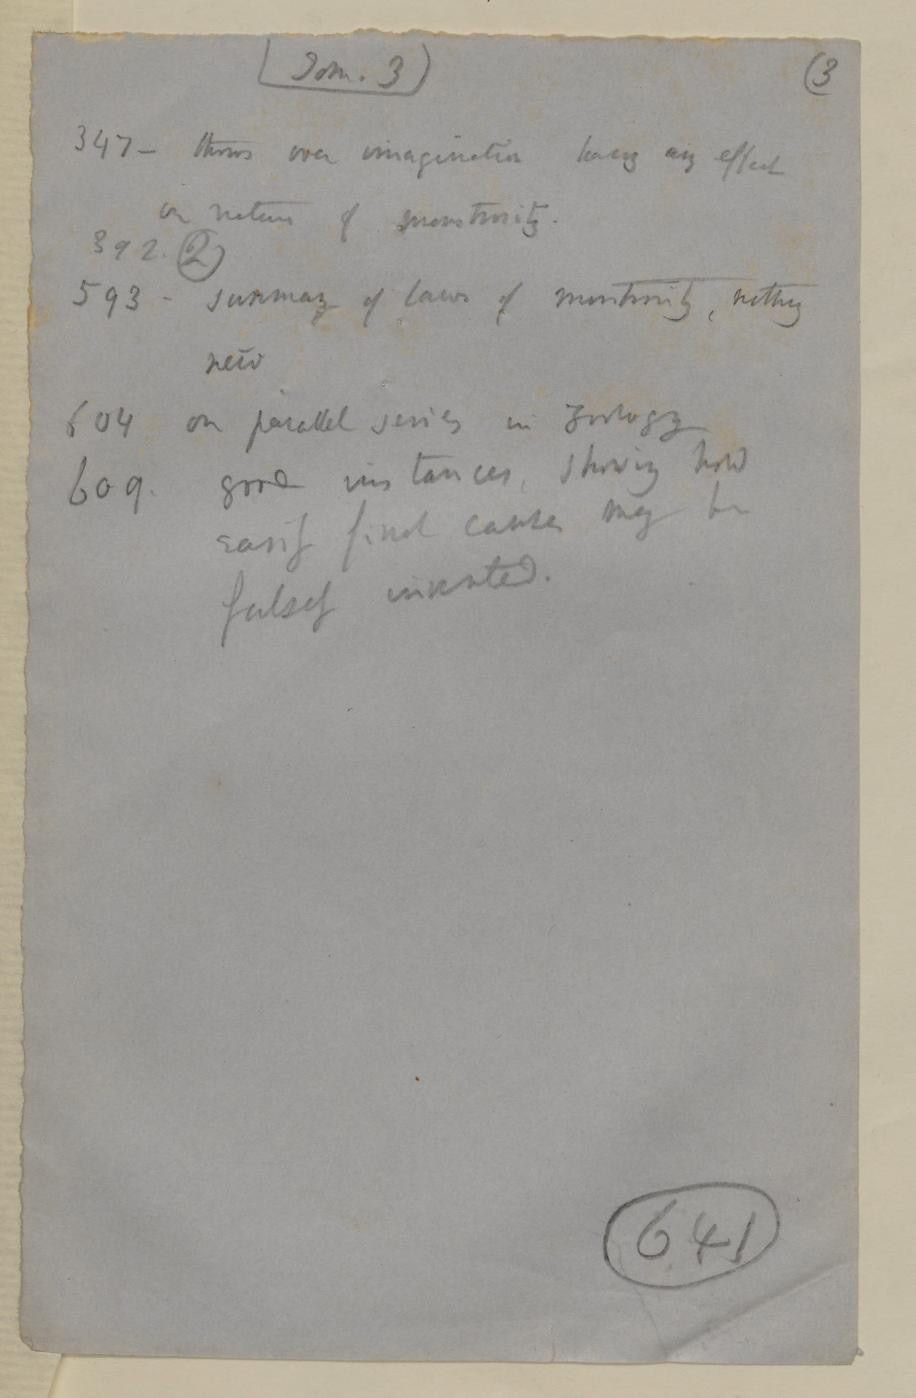 Tom. 3 (3
347 — throws over imagination having any effect
on nature of monstrosity.
392. (2)
593 - summary of laws of monstrosity, nothing
new
604 on parallel series in Zoology
609. good instances, showing how
easily final causes may be
falsely invented.
641